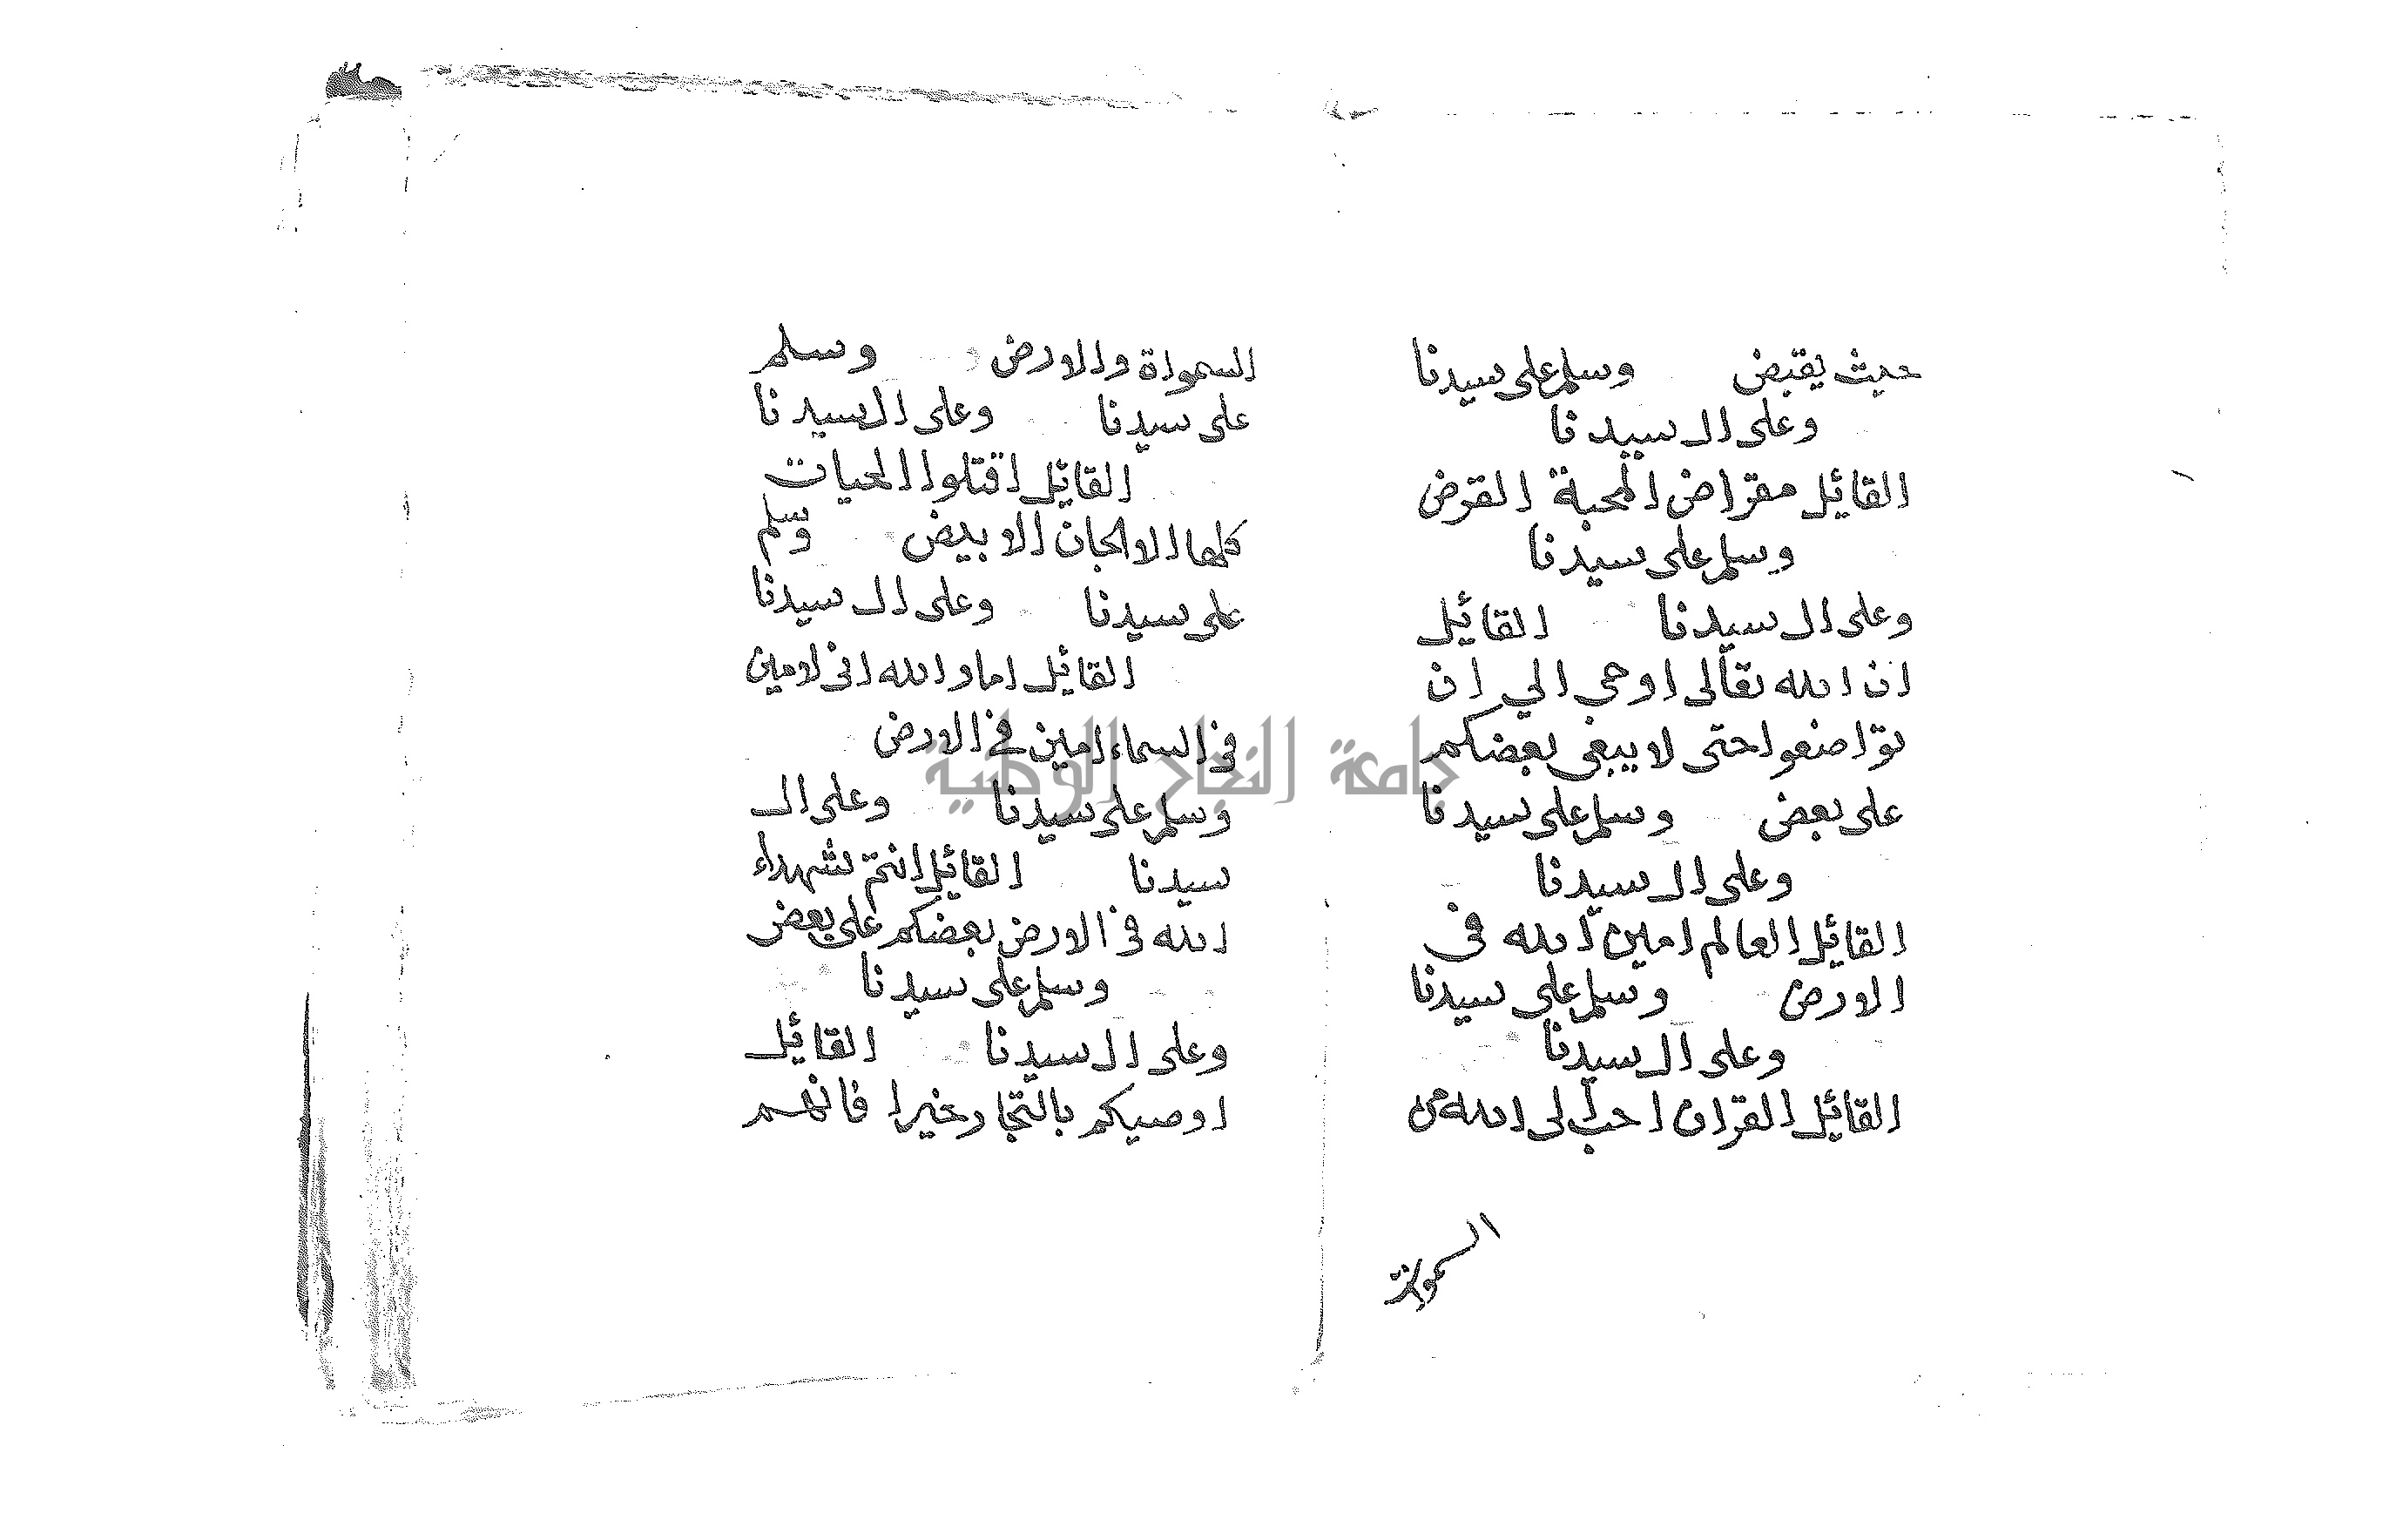 حيث يقبض وسلم على سيدنا
وعلى ال سيدنا
القائل مقراض المحبة القرض
وسلم على سيدنا
وعلى ال سيدنا القائل
ان الله تعالى اوحى الي ان
تواضعوا حتى لا يبغى بعضكم
على بعض وسلم على سيدنا
وعلى ال سيدنا
القائل العالم امين الله فى
الارض وسلم على سيدنا
وعلى ال سيدنا
القائل القران احب الى الله من
السمواة
السمواة والارض وسلم
على سيدنا وعلى ال سيدنا
القائل اقتلوا الحيات
كلها الا الجان الابيض وسلم
على سيدنا وعلى ال سيدنا
القائل اما والله انى لامين
فى السماء امين فى الارض
وسلم على سيدنا وعلى ال
سيدنا القائل انتم شهداء
الله فى الارض بعضكم على بعض
وسلم على سيدنا
وعلى ال سيدنا القائل
اوصيكم بالتجار خيرا فانهم
جامعة النجاح الوطنية